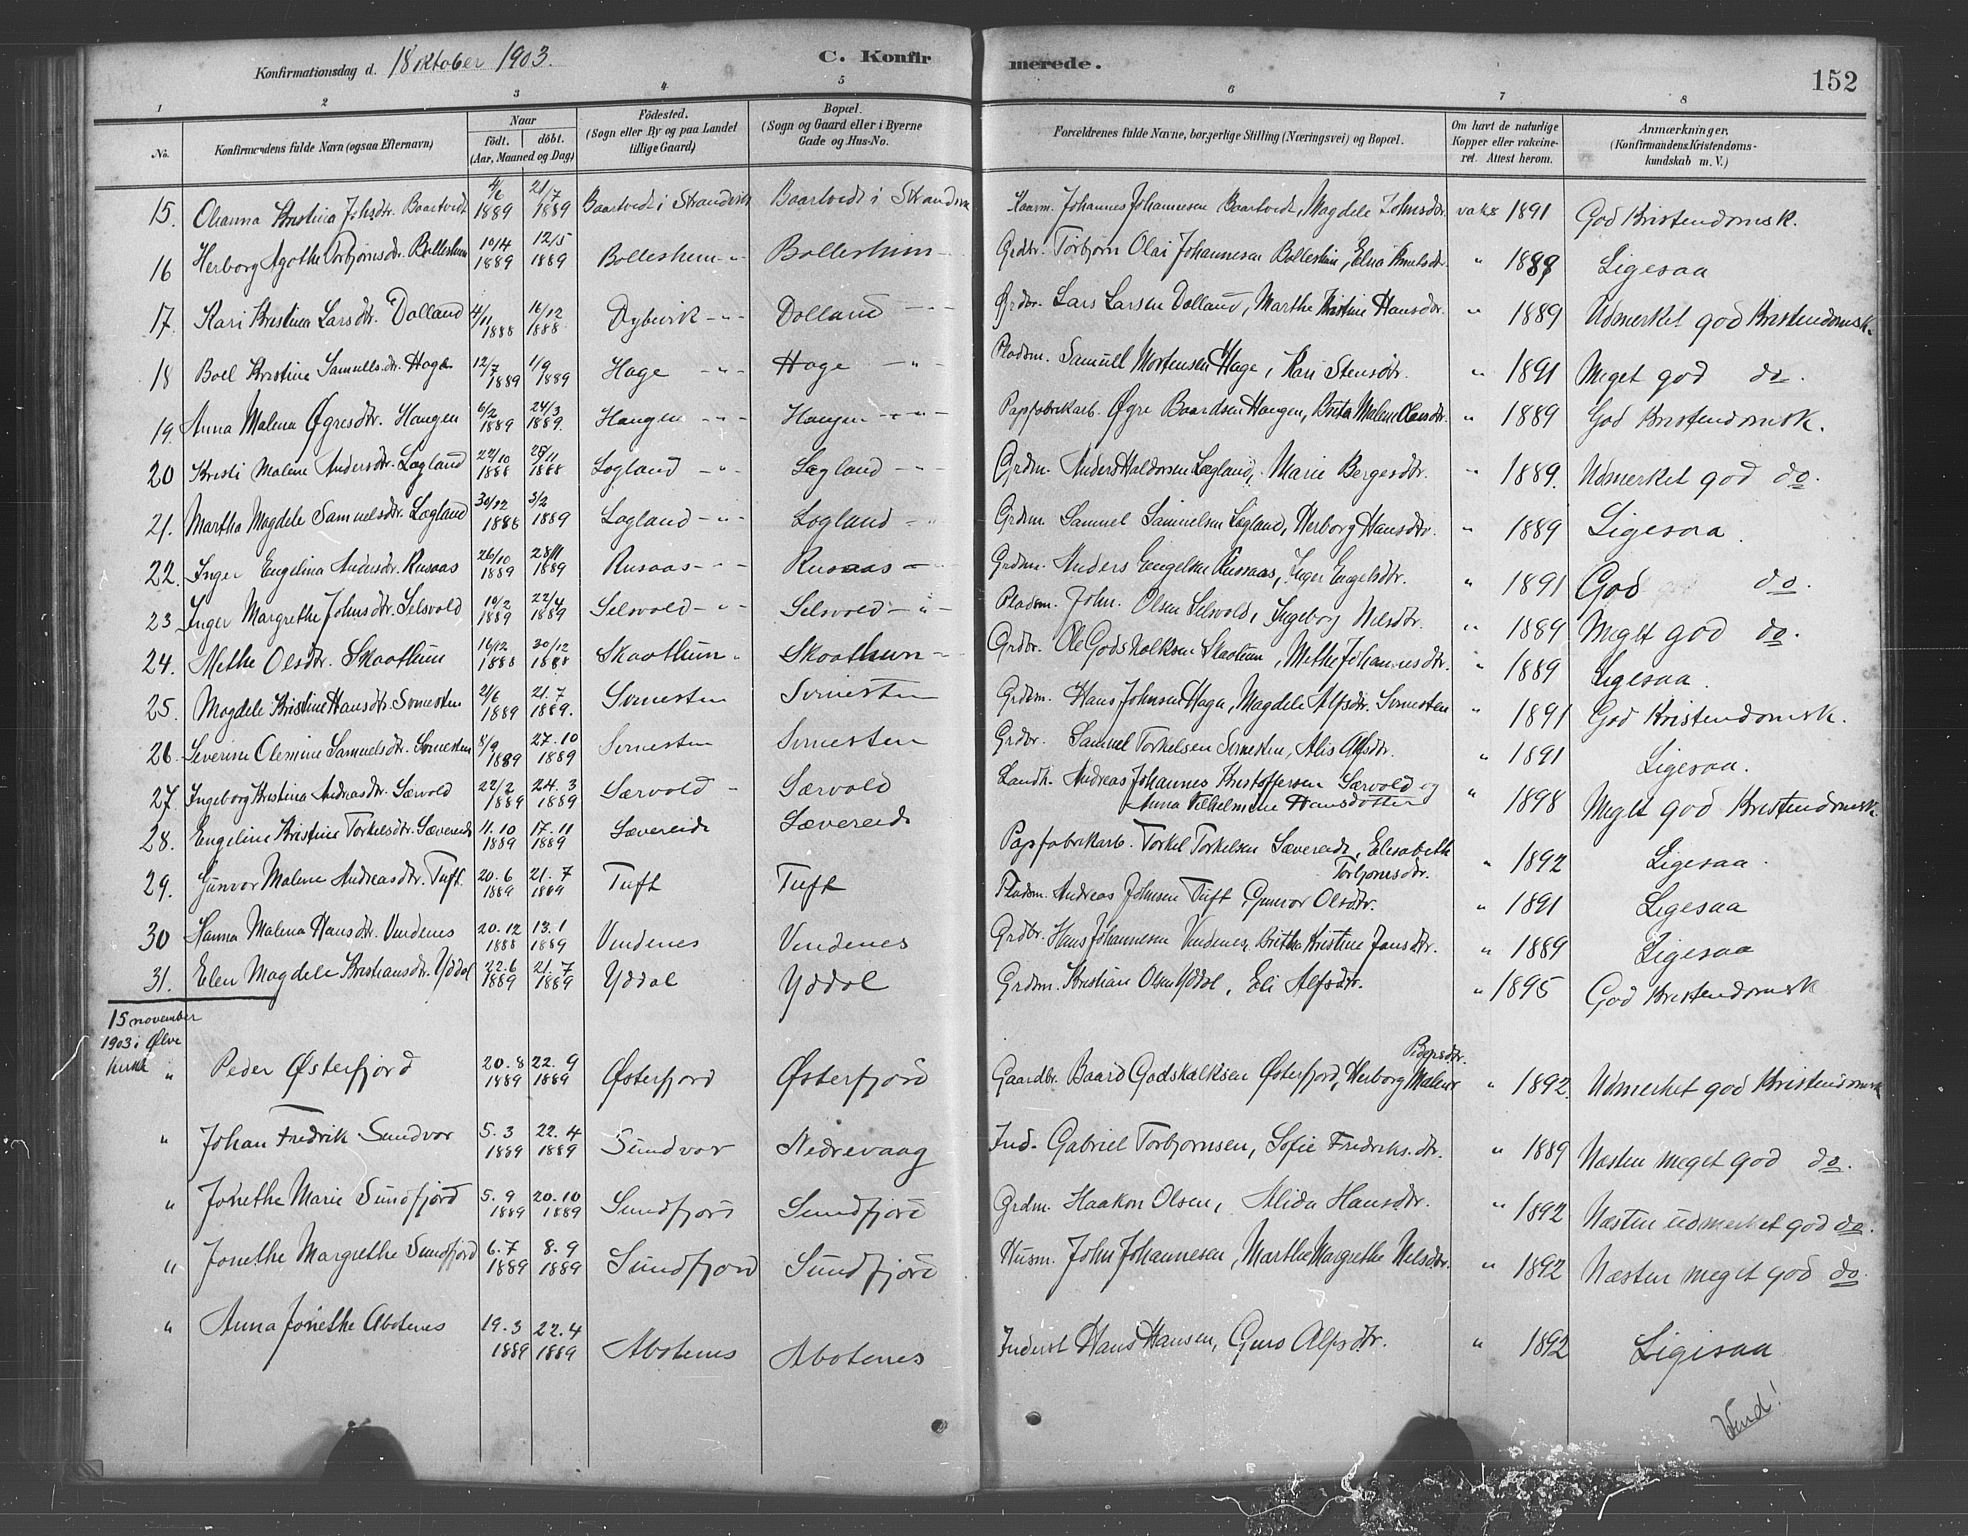 Konfirmationsdag d. 18 oktober 1903. C. Konfirmerede. 152
1 2 3 4 5 6 7 8
No. Konfirmandens fulde Navn (ogsaa Efternavn) Naar født. døbt. (Aar, Maaned og Dag) Fødested. (Sogn eller By og paa Landet tillige Gaard) Bopæl. (Sogn og Gaard eller i Byerne Gade og Hus-No. Forældrenes fulde Navne, borgerlige Stilling (Næringsvei) og Bopæl. Om havt de naturlige Kopper eller vakcineret. Attest herom. Anmærkninger. (Konfirmandens Kristendomskundskab m. V.)
15. Oleanna Kristina Johsdtr. Baartvedt 1889 21/7 1889 Baartvedt i Strandvik Baartvedt i Strandvik Johannes Johannesen Baartvedt, Magdele Johnsdtr. vaks 1891 God Kristendomsk.
16 Herborg Agothe Torbjørnsdtr. Bolleshem 10/4 1889 12/5 1889 Bolleshem -"- Bolleshim - Grdbr. Torbjørn Olai Johannesen Bolleshim, Elna Knutsdtr. " 1889 Ligesaa
17. Kari Kristina Larsdtr. Dolland 4/11 1888 16/12 1888 Dybvik -"- Dolland -"- Grdbr. Lars Larsen Dolland, Marthe Kristine Hansdtr. " 1889 Udmerket god Kristendomsk.
18 Boel Kristine Samuelsdtr. Hage 12/7 1889 1/9 1889 Hage -"- Hage -"- Pladsm. Samuel Mortensen Hage, Kari Stensdtr. " 1891 Meget god do.
19. Anna Malena Øgresdtr. Haugen 6/2 1889 24/3 1889. Haugen -"- Haugen -"- Papfabrikarb. Øgre Baardsen Haugen, Brita Malene Olansdtr. " 1889 God Kristendomsk.
20 Kristi Malene Andersdtr. Lægland 22/10 1888 25/11 1888 Lægland -"- Lægland -"- Grdm. Anders Haldorsen Lægland, Marie Bergesdtr. " 1889. Udmerket god do.
21. Martha Magdele Samuelsdtr. Lægland 30/12 1888 3/2 1889 Lægland -"- Lægland -"- Grdm. Samuel Samuelsen Lægland, Herborg Hansdtr. " 1889 Ligesaa.
22. Inger Engelina Andersdtr. Rusaas 26/10 1889 28/11 1889 Rusaas -"- Rusaas -"- Grdm. Anders Engelsen Rusaas, Inger Engelsdtr. " 1891 God do.
23 Inger Margrethe Johnsdtr. Selsvold 10/2 1889 22/4 1889 Selsvold -"- Selsvold -"- Pladsm. John Olsen Selsvold, Ingeborg Nilsdtr. " 1889 Meget god do.
24. Methe Olsdtr. Skaathun 16/12 1888 30/12 1888 Skaathun " Skaathun -"- Grdbr. Ole Godskalksen Skaatun, Methe Johannesdtr. " 1889 Ligesaa.
25. Magdele Kristine Hansdtr. Svinesten 2/6 1889 21.7 1889. Svinesten Svinesten Grdm. Hans Johnsen Haga, Magdele Alfsdtr. Svinesten " 1891 God Kristendomsk.
26. Severine Olemine Samuelsdtr. Svinesten 8/9 1889 27.10 1889 Svinesten Svinesten Grdbr. Samuel Torkelsen Svinesten, Alis Alfsdtr. " 1891 Ligesaa.
27. Ingeborg Kristina Andreasdtr. Særvold 22/2 1889 24.3 1889 Særvold - Særvold Landh. Andreas Johannes Kristoffersen Særvold og
Anna Vilhelmine Hansdotter " 1898 Meget god Kristendomsk.
28. Engeline Kristine Torkelsdtr. Sævereide 11.10 1889 17.11 1889 Sævereide Sævereide Papfabrikarb. Torkel Torkelsen Sævereide, Elisabeth
Torbjørnsdtr. " 1892 Ligesaa.
29. Gunvor Malene Andreasdtr. Tuft. 20.6 1889 21.7 1889 Tuft Tuft Pladsm. Andreas Johnsen Tuft, Gunvor Olsdtr. " 1891 Ligesaa
30 Hanna Malena Hansdtr. Vindenes 20.12 1888 13.1 1889 Vindenes Vindenes Grdbr. Hans Johannesen Vindenes, Britha Kristine Jansdtr. " 1889 Ligesaa
31. Elen Magdele Kristiansdtr. Yddal 22.6 1889 21.7 1889 Yddal Yddal Grdm. Kristian Olsen Yddal, Eli Alfsdtr. " 1895 God Kristendomsk
15 november
1903 i Ølve
kirke
" Peder Østerfjord 20.8 1889 22.9 1889 Østerfjord Østerfjord Gaardbr. Baard Godskalksen Østerfjord, Herborg Malene " 1892. Udmerket god Kristendomsk
" Johan Fredrik Sundvor 5.3 1889 22.4 1889 Sundvor Nedrevaag Ind. Gabriel Torbjørnsen, Sofie Fredriks.dtr. " 1889 Næsten meget god do.
" Jonethe Marie Sundfjord 5.9 1889 20.10 1889 Sundfjord Sundfjord Grdm. Haakon Olsen, Alida Hansdtr. " 1892 Næsten udmerket god do.
" Jonethe Margrethe Sundfjord 6.7 1889 8.9 1889 Sundfjord Sundfjord Husm. John Johannesen, Marthe Margrethe Nilsdtr. " 1892 Næsten meget god do.
" Anna Jonethe Abotenes 19.3 1889 22.4 1889 Abotenes Abotenes Inderst Hans Hansen, Guro Alfsdtr. " 1892 Ligesaa
Vend!